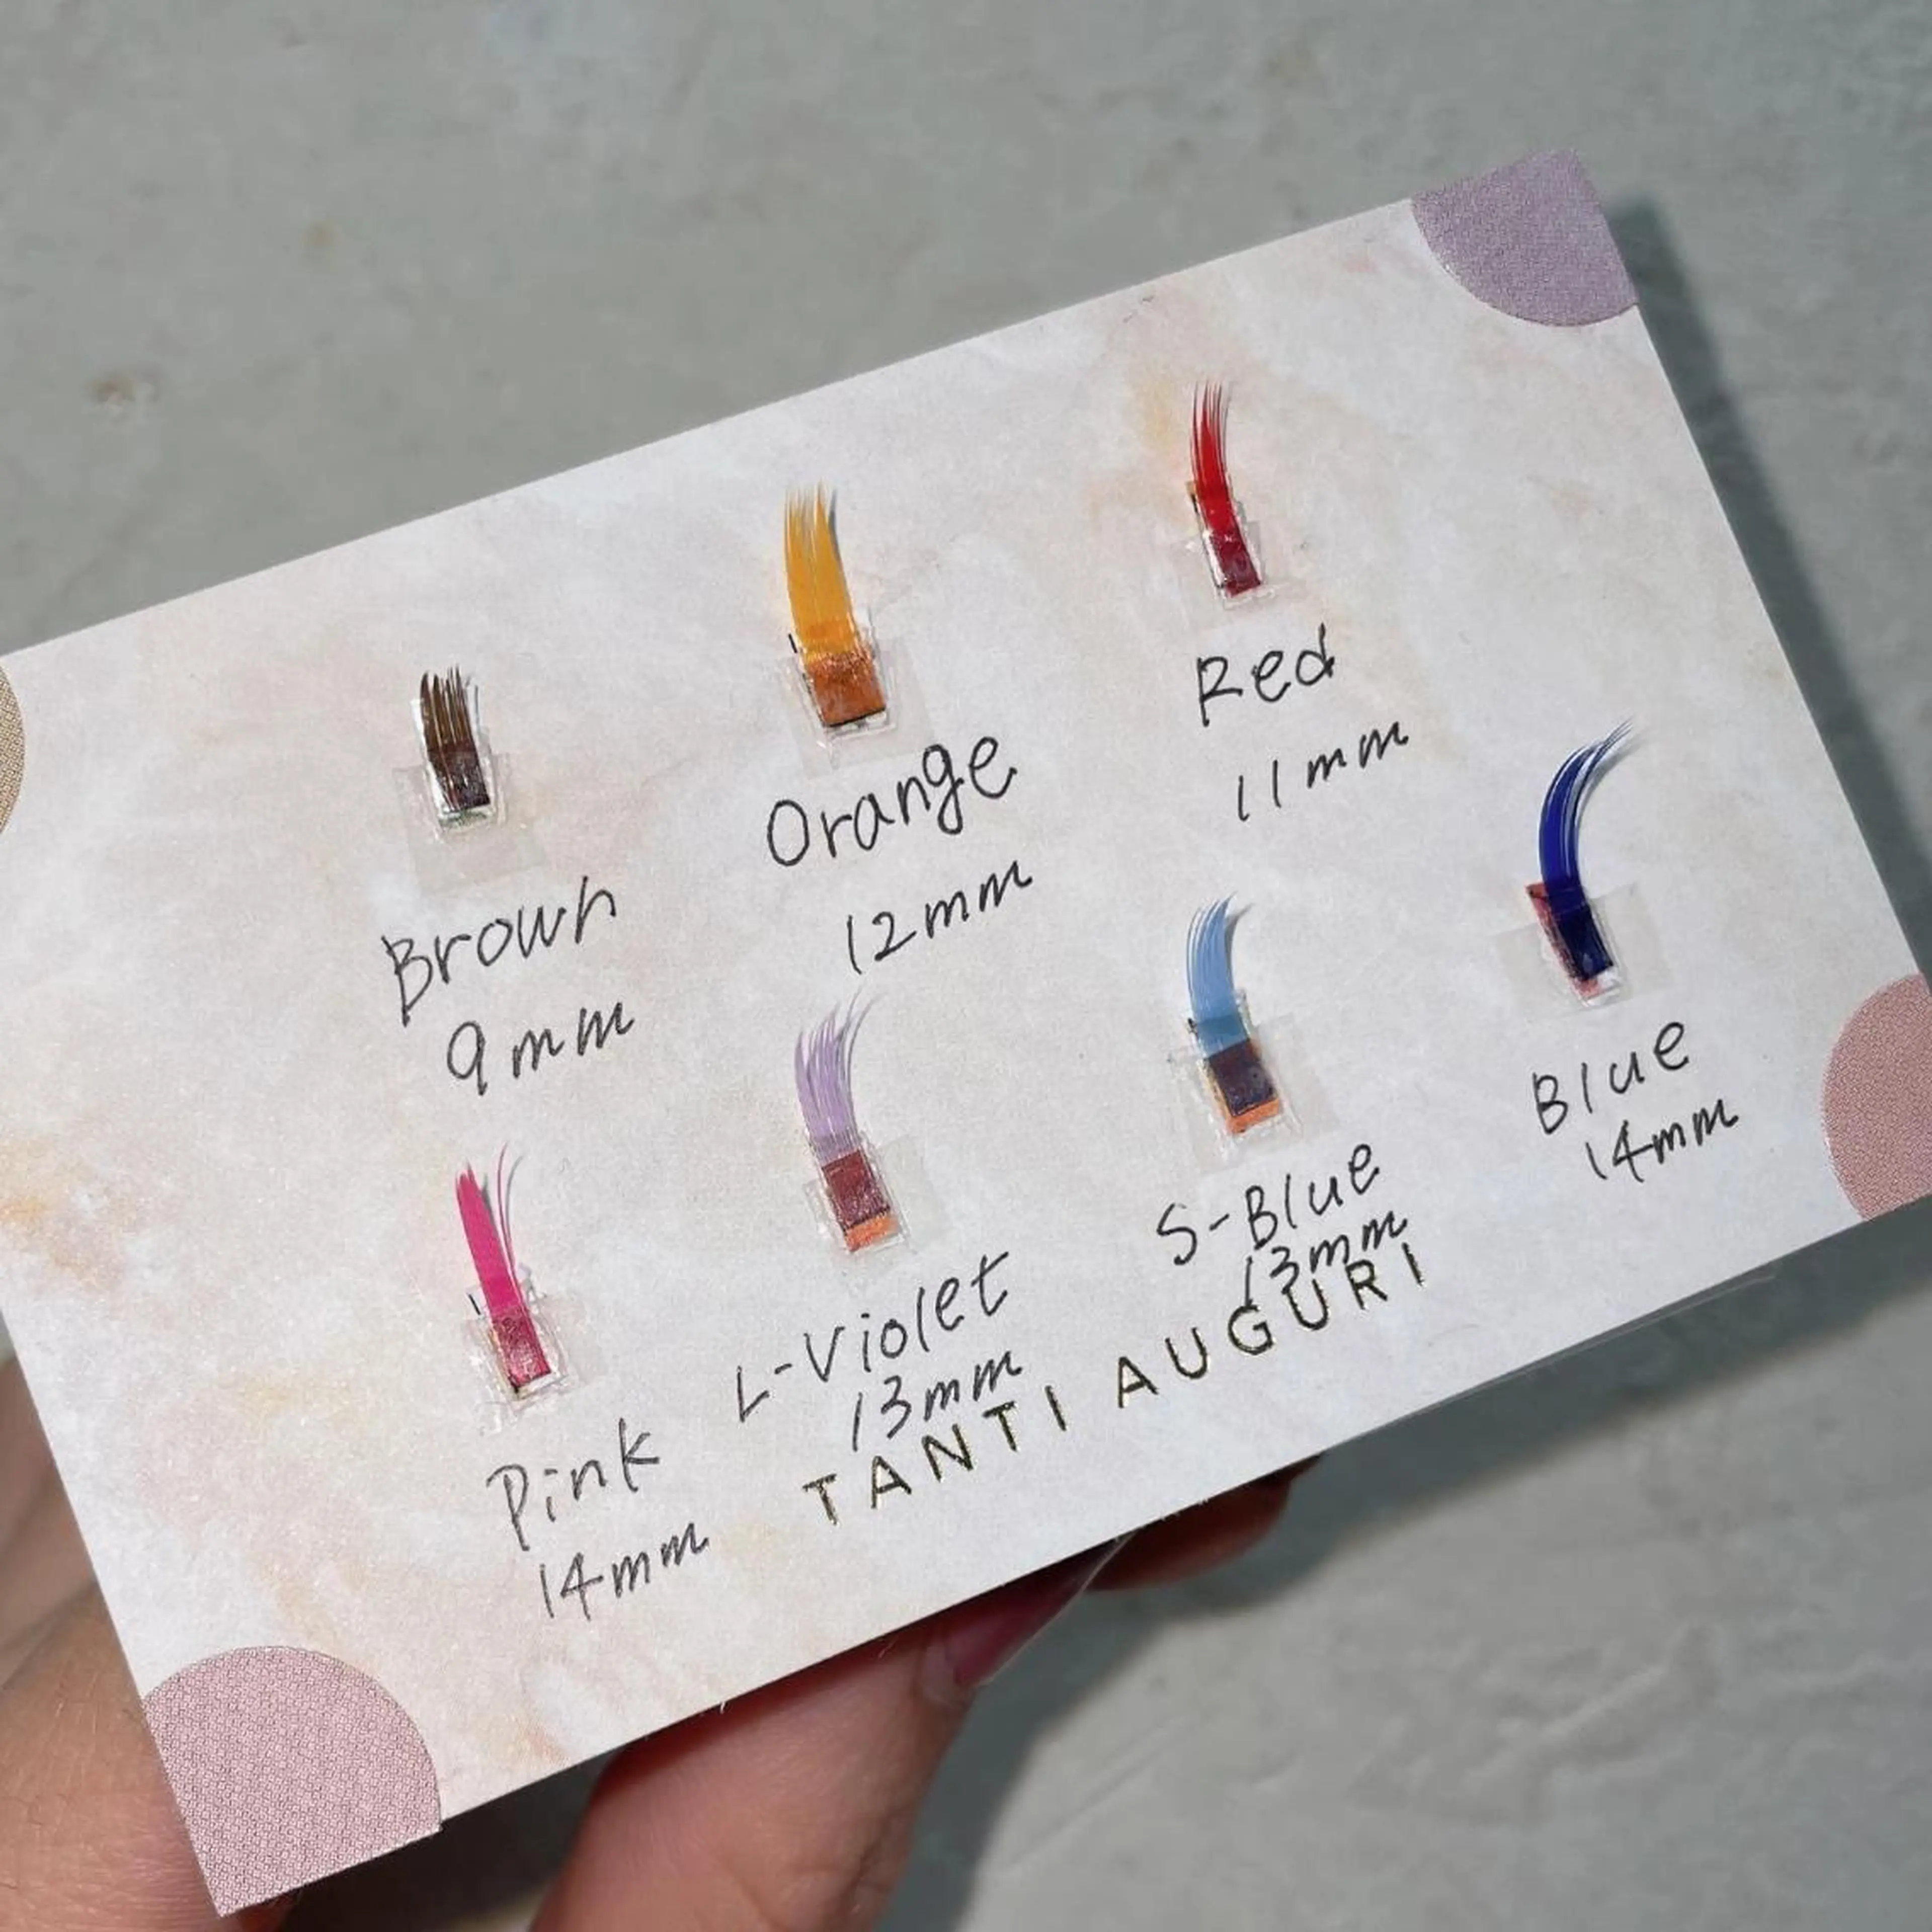 Brown
9mm
Orange
12mm
Red
11mm
Pink
14mm
L-Violet
13mm
S-Blue
13mm
Blue
14mm
TANTI AUGURI